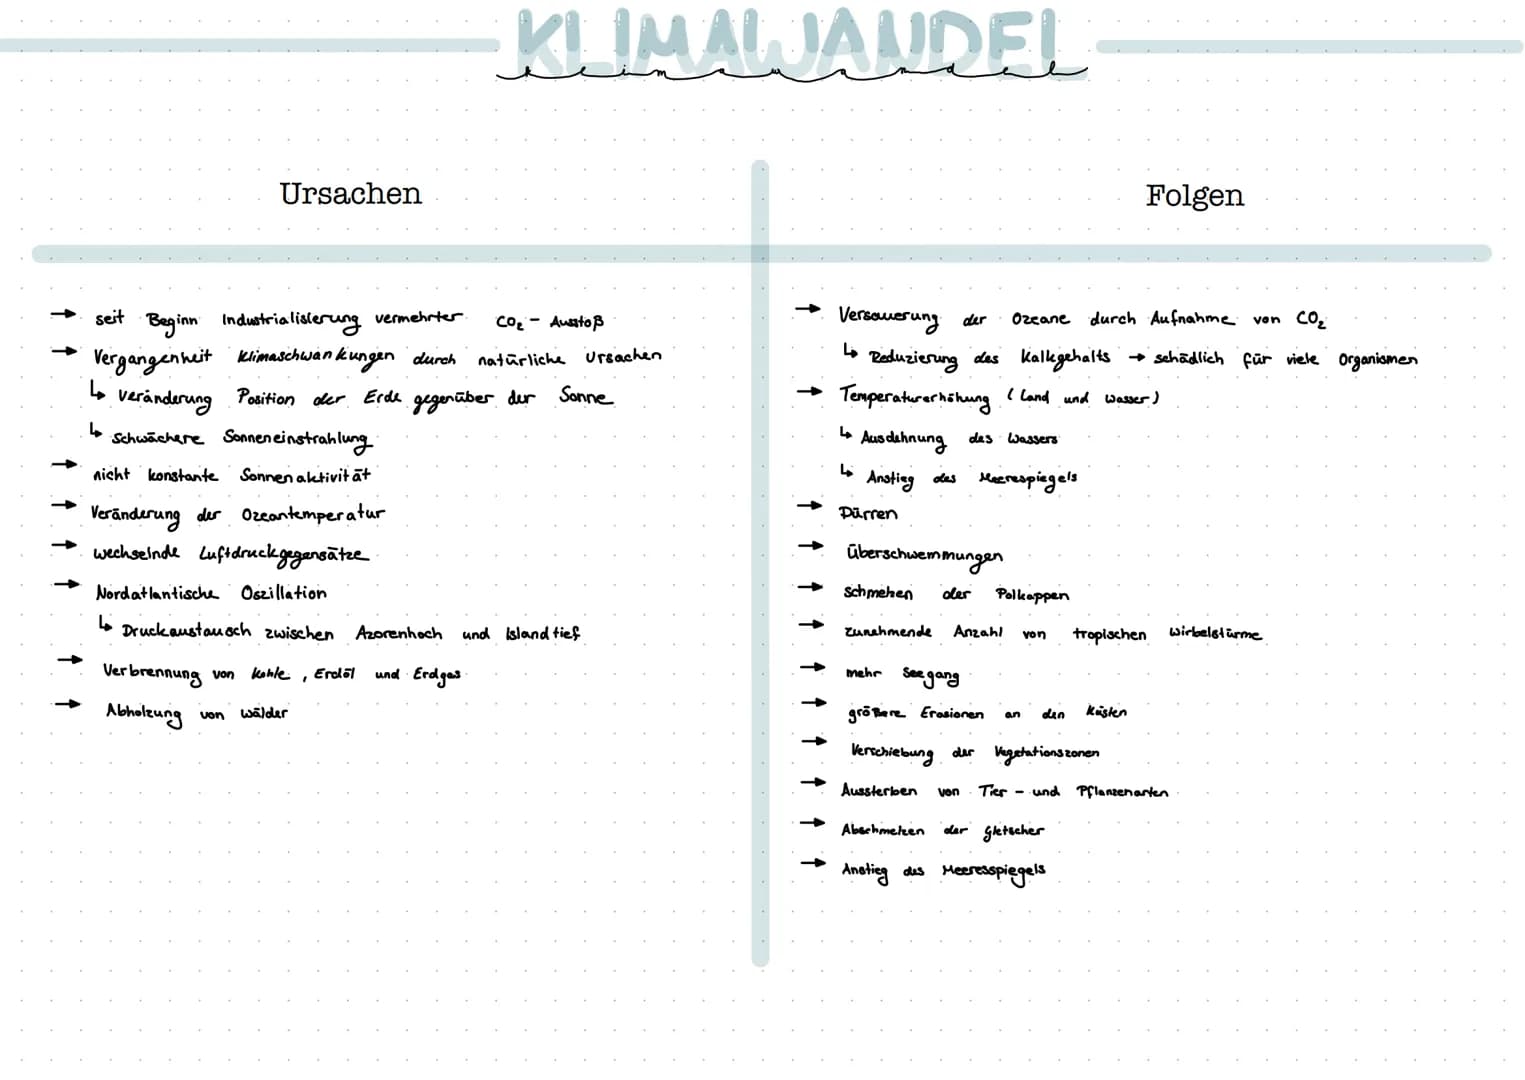 KLIMAWANDEL
klimawandel
Ursachen
→ seit Beginn Industrialisierung vermehrter CO₂ - Ausstoß
→ Vergangenheit Klimaschwankungen durch natürliche Ursachen
↳ Veränderung Position der Erde gegenüber der Sonne
↳ Schwächere Sonneneinstrahlung
→ nicht konstante Sonnenaktivität
→ Veränderung der Ozeantemperatur
→ wechselnde Luftdruckgegensätze
→ Nordatlantische Oszillation
↳ Druckaustausch zwischen Azorenhoch und Islandtief
→ Verbrennung von Kohle, Erdöl und Erdgas
→ Abholzung von Wälder
Folgen
→ Versauerung der Ozeane durch Aufnahme von CO₂
↳ Reduzierung des Kalkgehalts → schädlich für viele Organismen
→ Temperaturerhöhung (Land und Wasser)
↳ Ausdehnung des Wassers
↳ Anstieg des Meerespiegels
→ Dürren
→ Überschwemmungen
→ schmelzen der Polkappen
→ zunehmende Anzahl von tropischen Wirbelstürme
→ mehr Seegang
→ größere Erosionen an den Küsten
→ Verschiebung der Vegetationszonen
→ Aussterben von Tier - und Pflanzenarten
→ Abschmelzen der Gletscher
→ Anstieg des Meeresspiegels